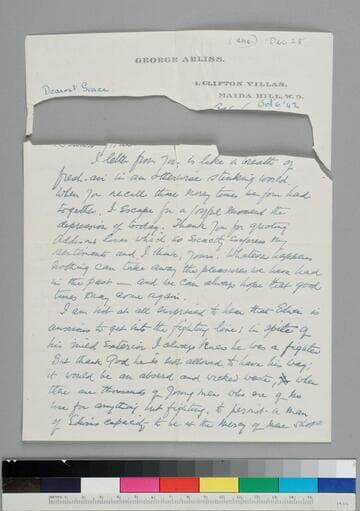 (ans. Dec 28
GEORGE ARLISS.
1, CLIFTON VILLAS,
MAIDA HILL, W. 9.
Dearest Grace
Oct 6 '42
A letter from you is like a breath of
fresh air in an otherwise stinking world.
When you recall those merry times we four had
together, I escape for a joyful moment the
depression of today. Thank you for quoting
Addisons lines which so exactly express my
sentiments and, I think, yours. Whatever happens
nothing can take away the pleasures we have had
in the past — and we can always hope that good
times may come again.
I am not at all surprised to hear that Edwin is
anxious to get into the fighting line; in spite of
his mild exterior I always knew he was a fighter
But thank God he is not allowed to have his way;
it would be an absurd and wicked waste, when
there are thousands of young men who are of no
use for anything but fighting, to permit a man
of Edwins capacity to be at the mercy of mere shots